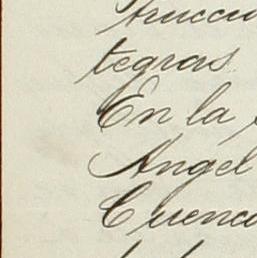 trucci
tegras.
En la
Angel
Cuenca